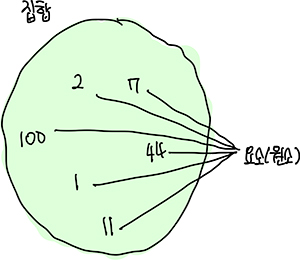 집합
2
7
100
44
1
11
요소(원소)